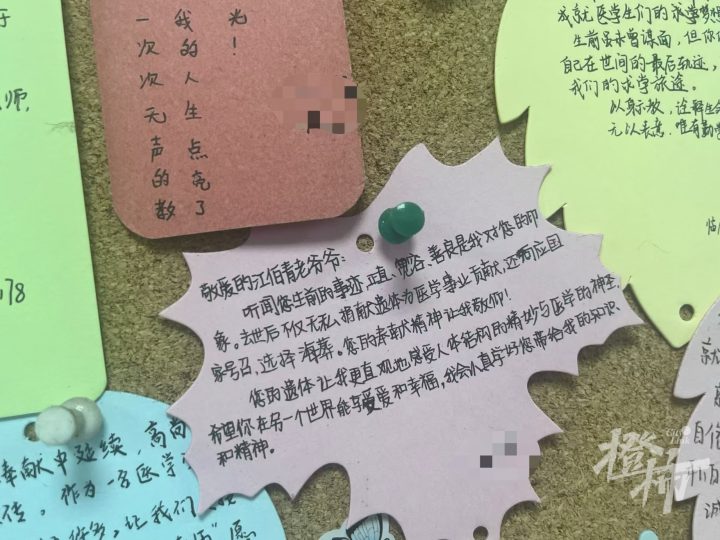 于
师,
178
光!
我的人生点亮了
一次次无声的教
成就医学生们的求学梦想
生前虽未曾谋面,但你们
自己在世间的最后轨迹,
我们的求学旅途。
以身示教,诠释生
无以表意,唯有勤学
临
敬爱的江伯青老爷爷:
听闻您生前的事迹,正直、宽容、善良是我对您的印
象。去世后不仅无私捐献遗体为医学事业贡献,还响应国
家号召,选择海葬。您的奉献精神让我敬仰!
您的遗体让我更直观地感受人体结构的精妙与医学的神圣,
希望你在另一个世界能享受爱和幸福,我会认真学好您带给我的知识
和精神。
奉献中延续,高尚
传。作为一名医学
让我们
愿
就
自信
诚
橙柿